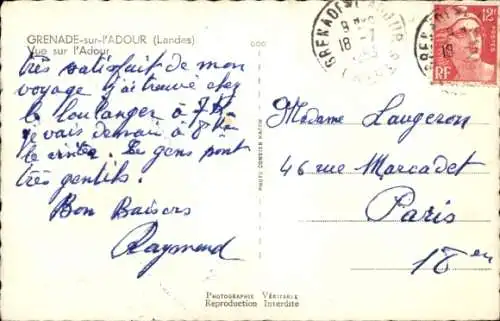 GRENADE-sur-l'ADOUR (Landes)
Vue sur l'Adour
très satisfait de mon
voyage j'ai trouvé chez
le boulanger à 7 H
je vais demain à 8
le visiter. Les gens sont
très gentils.
Bon Baisers
Raymond
GRENADE S/ ADOUR
18 -7
12F
RF
Madame Laugeron
46 rue Marcadet
Paris
18en
PHOTOGRAPHIE VÉRITABLE
Reproduction Interdite